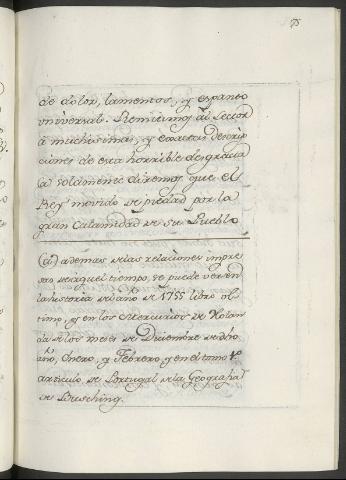 de dolor, lamentos, y espanto
vniversal. Remitimos al Lector
a muchisimas, y exactas descrip
ciones de esta horrible desgracia
(a) solamente diremos que el
Rey movido de piedad por la
gran Calamidad de su Pueblo
(a) ademas de las relaciones impre
sas de aquel tiempo, se puede ver en
la historia del año de 1755 libro ul
timo, y en los Mercurios de Holan
da de los meses de Diciembre de dho
año, Enero, y Febrero, y en el tomo 1º
articulo de Portugal de la Geografia
de Busching.